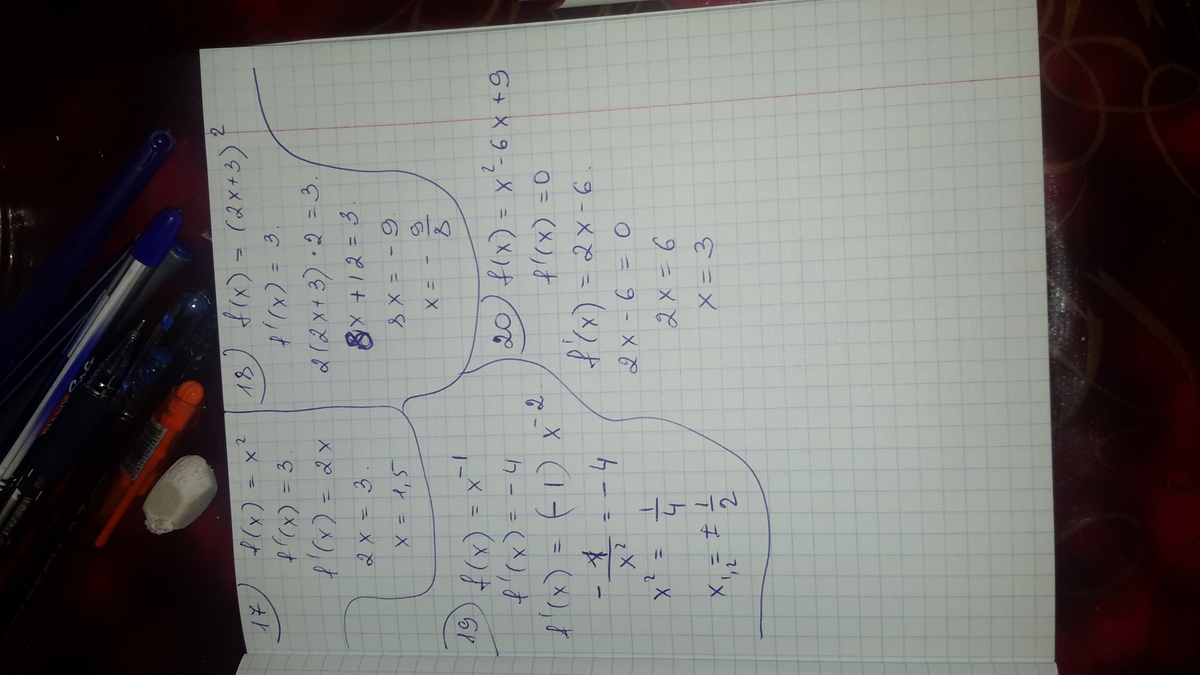 17) f(x) = x²
f'(x) = 3.
f'(x) = 2x
2x = 3.
x = 1,5
18) f(x) = (2x+3)²
f'(x) = 3.
2(2x+3)·2 = 3.
8x + 12 = 3.
8x = -9
x = - 9/8
19) f(x) = x⁻¹
f'(x) = -4
f'(x) = (-1) x⁻².
- 1/x² = -4
x² = 1/4
x₁,₂ = ± 1/2
20) f(x) = x² - 6x + 9
f'(x) = 0
f'(x) = 2x - 6.
2x - 6 = 0
2x = 6
x = 3